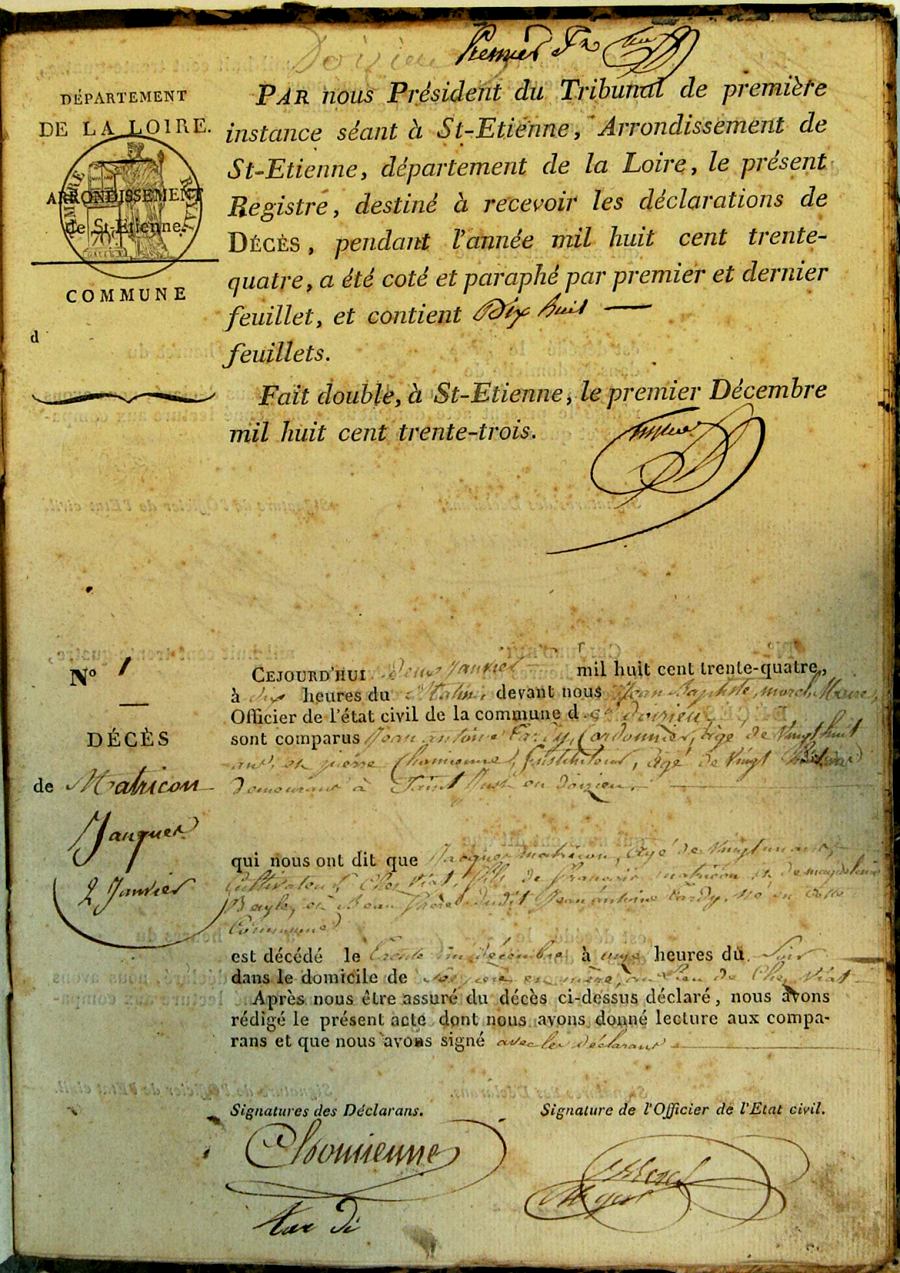 Doizieu
Premier
DÉPARTEMENT
DE LA LOIRE.
TIMBRE ROYAL
ARRONDISSEMENT
de St-Etienne.
COMMUNE
d
PAR nous Président du Tribunal de première
instance séant à St-Etienne, Arrondissement de
St-Etienne, département de la Loire, le présent
Registre, destiné à recevoir les déclarations de
DÉCÈS, pendant l'année mil huit cent trente-
quatre, a été coté et paraphé par premier et dernier
feuillet, et contient Dix huit
feuillets.
Fait double, à St-Etienne, le premier Décembre
mil huit cent trente-trois.
N° 1
DÉCÈS
de Matricon
Jacques
2 Janvier
CEJOURD'HUI deux Janvier mil huit cent trente-quatre,
à dix heures du Matin, devant nous Jean Baptiste morel Maire,
Officier de l'état civil de la commune d. de Doizieu,
sont comparus Jean antoine Tardy, Cordonnier, âgé de Vingt huit
ans, et pierre Chomienne, Instituteur, âgé de vingt
demeurant à Saint Just en doizieu,
qui nous ont dit que Jacques matricon, âgé de vingt un ans,
Cultivateur à Chez Viat, fils de François matricon et de magdelaine
Bayle, et Beau frère dudit Jean antoine Tardy, né en cette
Commune
est décédé le Trente un décembre à onze heures du Soir
dans le domicile de ses père et mère, au Lieu de Chez Viat
Après nous être assuré du décès ci-dessus déclaré, nous avons
rédigé le présent acte dont nous avons donné lecture aux compa-
rans et que nous avons signé avec les déclarans
Signatures des Déclarans. Signature de l'Officier de l'Etat civil.
Chomienne
Morel
tar di